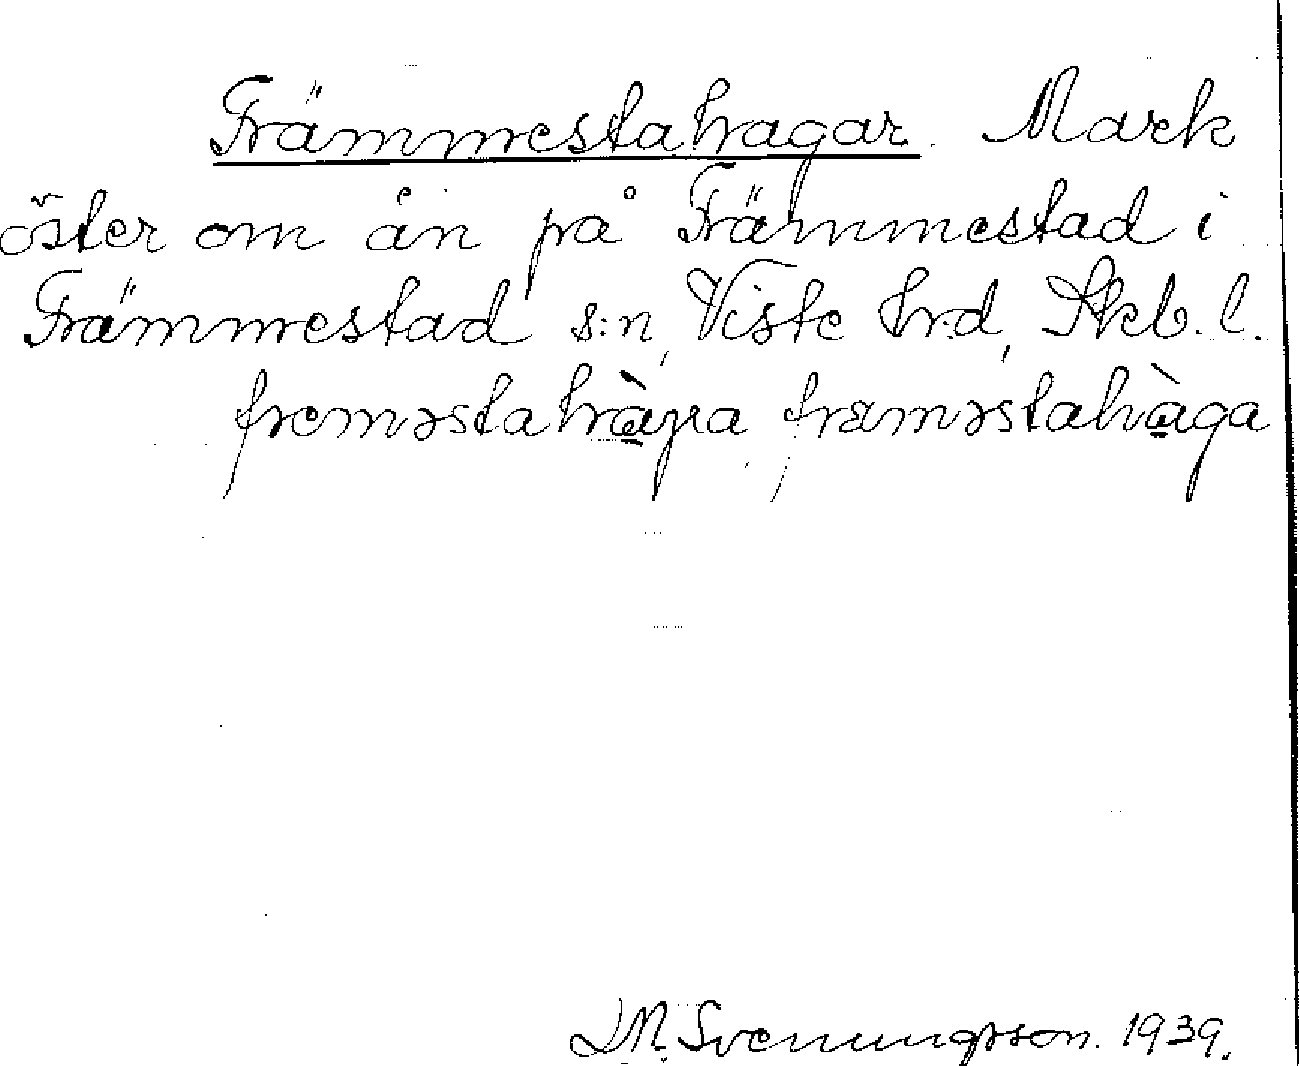 Främmestahagar. Mark
öster om ån på Främmestad i
Främmestad s:n, Viste hrd, Skb. l.
fremǝstahàga, fræmǝstahàga
J M. Svenungsson. 1939.